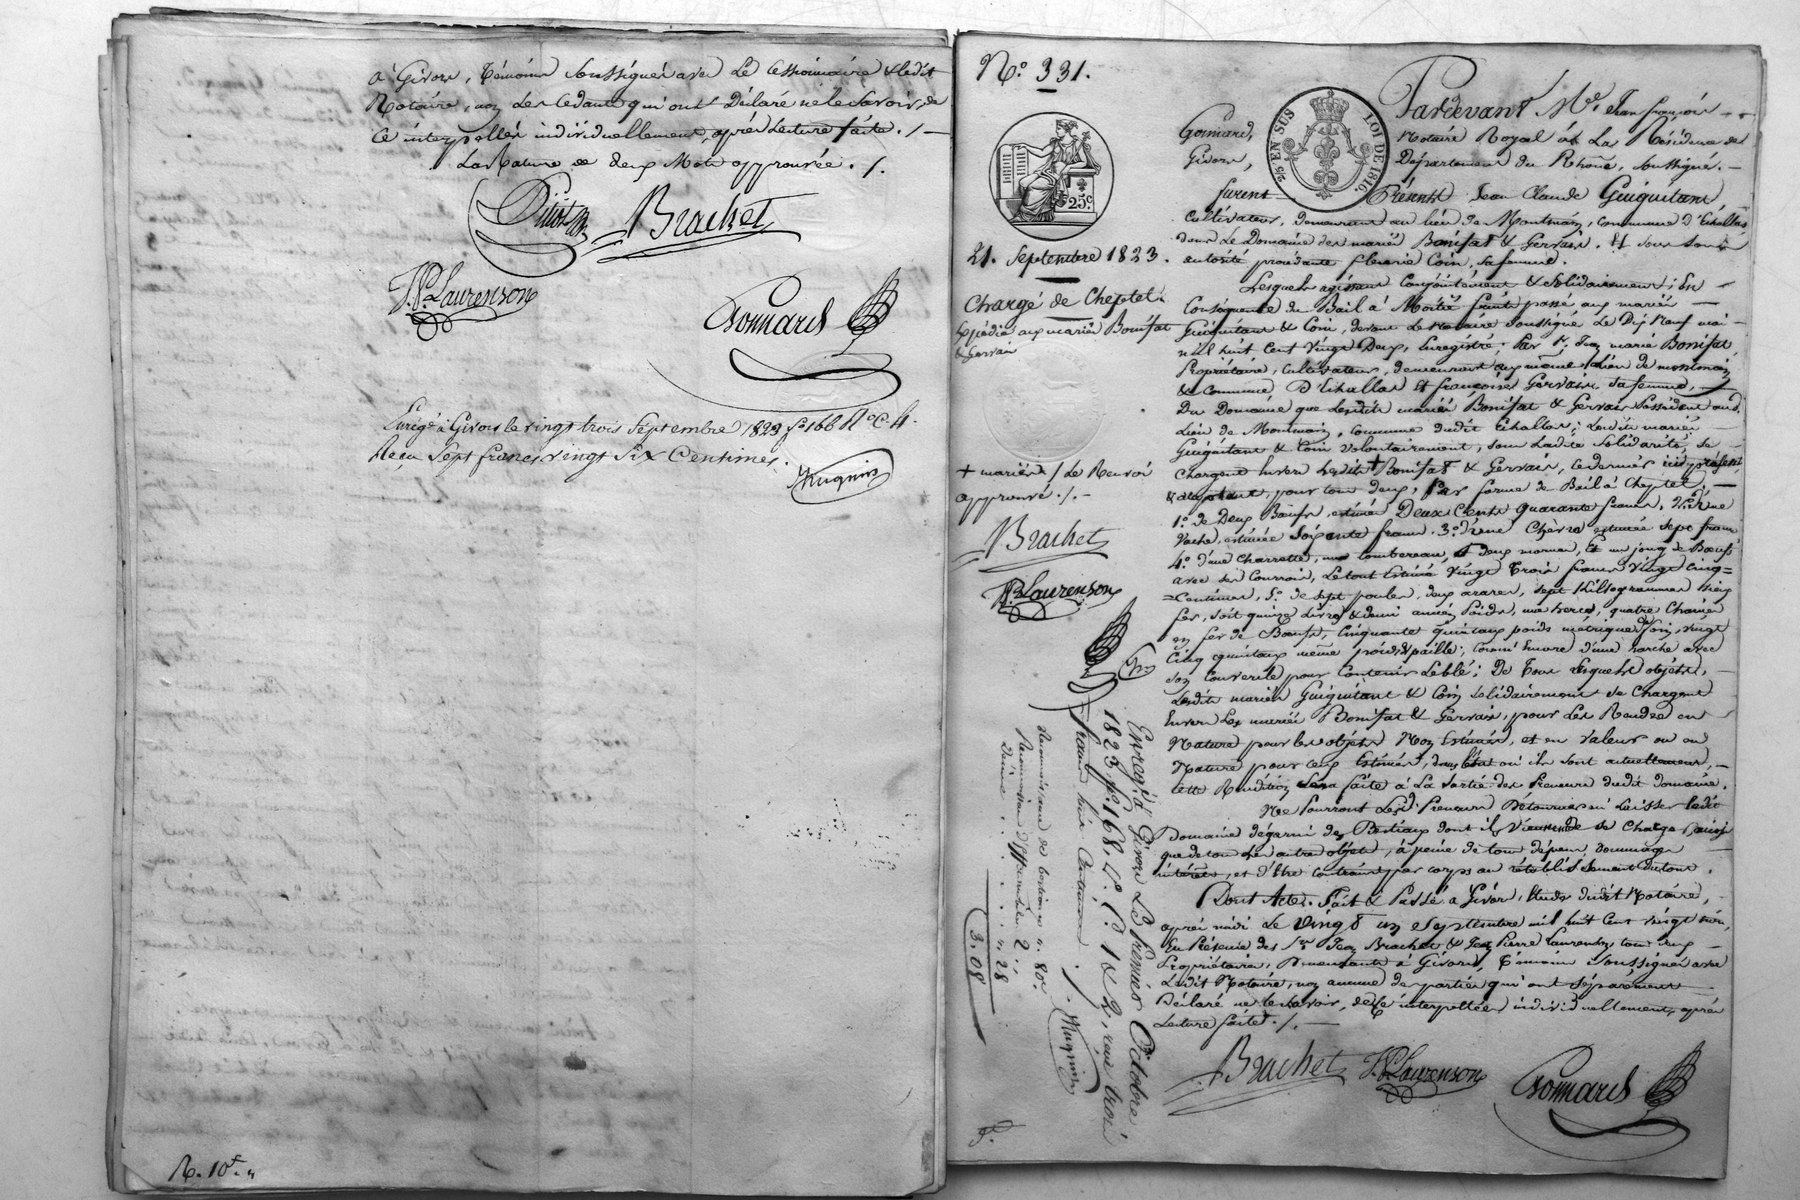 à Givors, témoins soussignés avec le cessionnaire & ledit
Notaire, non les cédants qui ont déclaré ne le savoir, de
ce interpellés individuellement, après lecture faite ./.
La rature de deux mots approuvée ./.
Brachet
J. P. Laurenson
Gonnard
Enrgé à Givors le vingt trois Septembre 1823 fo 166 Ro C. 4.
Reçu Sept francs vingt six Centimes.
Hugnin
R. 10f. "
No. 331.
25c
25c EN SUS
LOI DE 1816.
21. Septembre 1823.
Chargé de Cheptel.
Expédié aux mariés Bonifat
& Gervais
+ mariés / Le Renvoi
approuvé ./.
Brachet
J. P. Laurenson
Pardevant Me. Jean françois
Gonnard, Notaire Royal à la Résidence de
Givors, Département du Rhône, soussigné.
furent Présents Jean Claude Guiguitant,
cultivateur, demeurant au lieu de Montmain, commune d'Echallas,
dans le Domaine des mariés Bonifat & Gervais. Et sous son
autorité procédante Coin, sa femme.
Lesquels agissant conjointement & solidairement; En
Conséquence du Bail à Moitié fruits passé aux mariés
Guiguitant & Coin, devant le Notaire soussigné le Dix Neuf mai
mil huit cent vingt Deux, Enregistré; Par Sr. Jean marie Bonifat,
Propriétaire, cultivateur, demeurant au même lieu de montmain,
& Commune D'Echallas Et françoise Gervais sa femme,
Du Domaine que lesdits mariés Bonifat & Gervais possèdent aud.
Lieu de Montmain, commune dudit Echallas; lesdits mariés
Guiguitant & Coin volontairement, sous ladite solidarité, se
Chargent envers lesdits + Bonifat & Gervais, ce dernier ici présent
& acceptant, pour tous deux, Par forme de Bail à Cheptel,
1o. de Deux Bœufs, estimés Deux Cents quarante francs. 2o. D'une
Vache, estimée soixante francs. 3o. d'une Chèvre estimée sept francs
4o. d'une charrette, un tombereau, & deux Et un joug de Bœufs
avec ses Courroies, Le tout Estimé Vingt Trois francs Vingt Cinq=
=Centimes, 5o. de sept poules, deux araires, sept Kilogrammes
fer, soit quinze Livres & demi ancien Poids, une herse, quatre Chaines
en fer de Bœufs, Cinquante quintaux poids métrique de foin, vingt
Cinq quintaux même poids paille; d'une arche avec
son couvercle pour Contenir le blé; De Tous lesquels objets,
Lesdits mariés Guiguitant & Coin solidairement se Chargent
Envers Les mariés Bonifat & Gervais, pour les Rendre en
Nature pour les objets Non Estimés, et en Valeur ou en
Nature pour ceux Estimés, dans l'état où ils sont actuellement,
cette Reddition sera faite à La Sortie des Preneurs dudit domaine.
Ne Pourront Lesd. Preneurs Détourner ni Laisser ledit
Domaine dégarni des Bestiaux dont ils Viennent de se Charger ainsi
que de tous les autres objets, à peine de tous dépens dommages
intérêts, et d'être contraints par corps au rétablissement du tout.
Dont Acte. Fait & Passé à Givors, Etude dudit Notaire,
après midi Le Vingt un Septembre mil huit cent vingt trois,
En Présence des Srs. Jean Brachet & Jean Pierre Laurenson, tous deux
Propriétaires, Demeurants à Givors, Témoins soussignés avec
Ledit Notaire, non aucune des parties qui ont séparément
Déclaré ne le savoir, de ce interpellées individuellement, après
Lecture faite ./.
Brachet J. P. Laurenson Gonnard
Enregé. à Givors le Premier Octobre
1823 fo. 168. Vo. C. 1 & 2, reçu trois
francs huit Centimes ./. Hugnin
2. "
" 28
3. 08